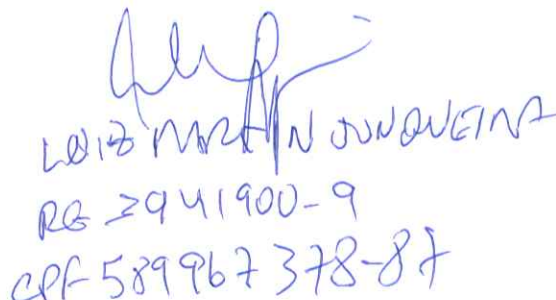 LUIZ MARTIN JUNQUEIRA
RG 3941900-9
CPF 589967378-87